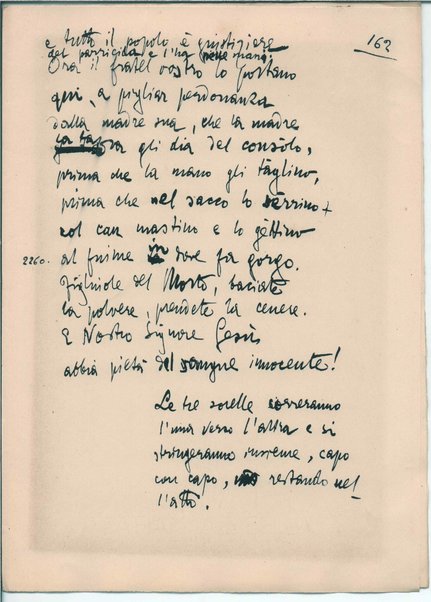 162
e tutto il popolo è giustiziere
del parricida e l'ha nelle mani.
Ora il fratel vostro lo portano
qui, a pigliar perdonanza
dalla madre sua, che la madre
la tazza gli dia del consòlo,
prima che la mano gli tàglino,
prima che nel sacco lo sèrrino
col can mastino e lo gèttino
2260. al fiume in dove fa gorgo.
Figliuole del Morto, baciate
la polvere, prendete la cenere.
E Nostro Signore Gesù
abbia pietà del sangue innocente!
Le tre sorelle correranno
l'una verso l'altra e si
stringeranno insieme, capo
con capo, restando nel-
l'atto.